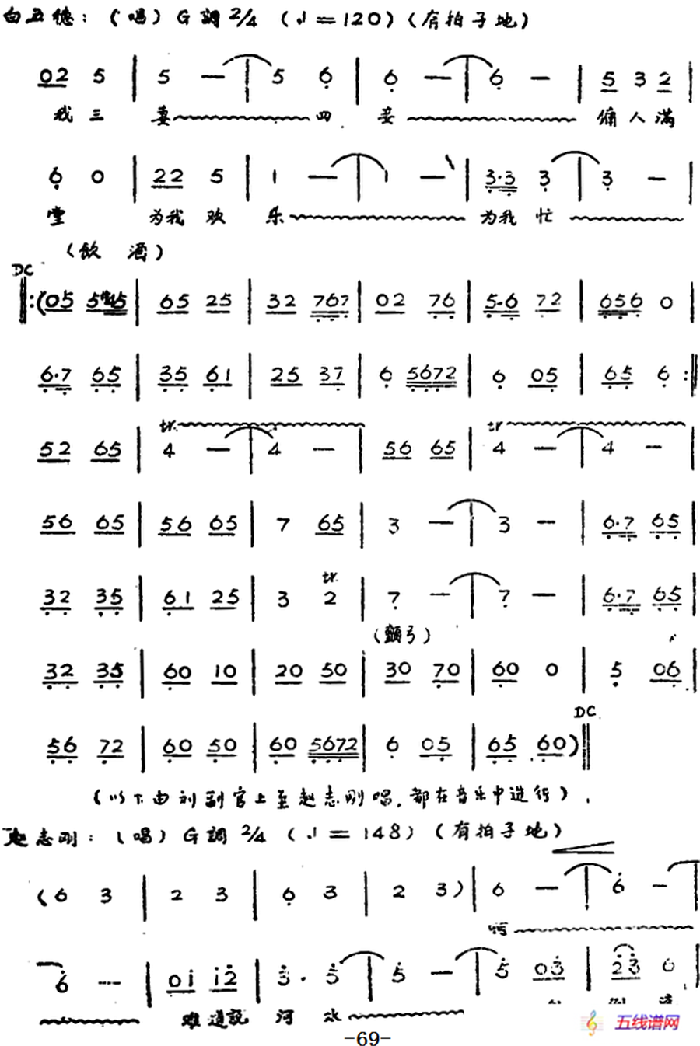 白五德：（唱）G調 2/4（♩=120）（有拍子地）
02 5 | 5 — | 5 6 | 6 — | 6 — | 5 3 2 |
我三 妻 四 妾 佣人满
6 0 | 22 5 | 1 — | 1 — | 3·3 3 | 3 — |
堂 为我 欢 乐 为我 忙
（飲 酒）
DC
65 25 | 32 767 | 02 76 | 5·6 72 | 656 0 |
6·7 65 | 35 61 | 25 37 | 6 5672 | 6 05 | 65 6 :||
tr tr
52 65 | 4 — | 4 — | 56 65 | 4 — | 4 — |
56 65 | 56 65 | 7 65 | 3 — | 3 — | 6·7 65 |
tr
32 35 | 61 25 | 3 2 | 7 — | 7 — | 6·7 65 |
（顫弓）
32 35 | 60 10 | 20 50 | 30 70 | 60 0 | 5 06 |
DC
56 72 | 60 50 | 60 5672 | 6 05 | 65 60）||
（以下由刘副官上至赵志刚唱，都在音乐中进行）．
志刚：（唱）G調 2/4（♩=148）（有拍子地）
（6 3 | 2 3 | 6 3 | 2 3）| 6 — | 6 — |
6 — | 01 12 | 3· 5 | 5 — | 5 03 | 23 6 |
难道說 河 水
五线谱网
-69-